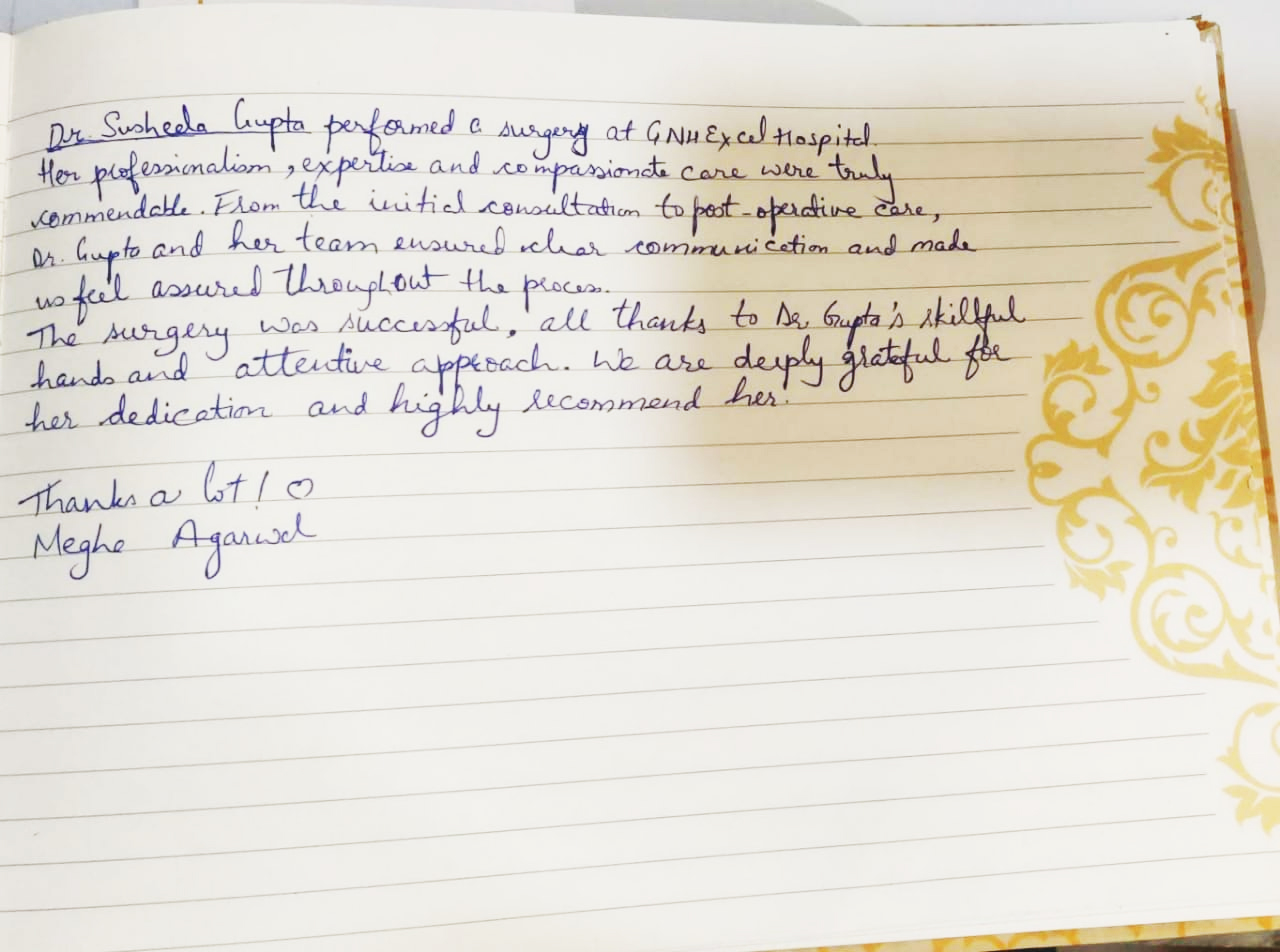 Dr. Susheela Gupta performed a surgery at GNH Excel Hospital.
Her professionalism, expertise and compassionate care were truly
commendable. From the initial consultation to post-operative care,
Dr. Gupta and her team ensured clear communication and made
us feel assured throughout the process.
The surgery was successful, all thanks to Dr. Gupta's skillful
hands and attentive approach. We are deeply grateful for
her dedication and highly recommend her.
Thanks a lot! ♡
Megha Agarwal